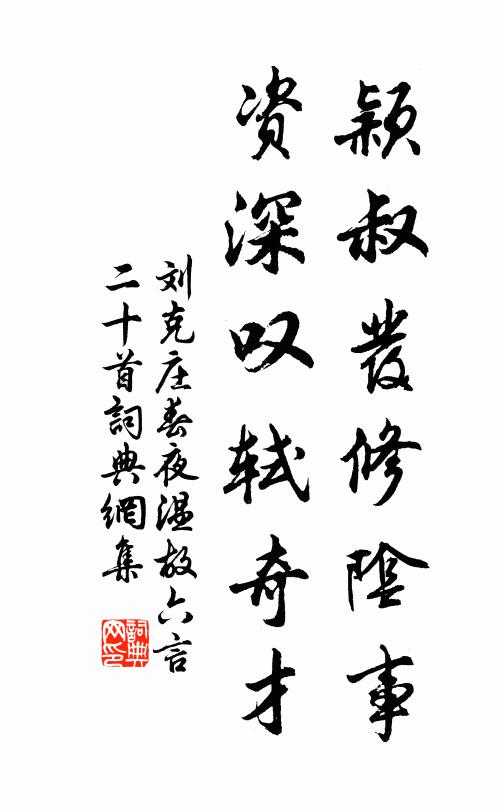 颖叔发修陰事
资深叹轼奇才
刘克庄春夜温故六言
二十首詞典網集
詞典網印